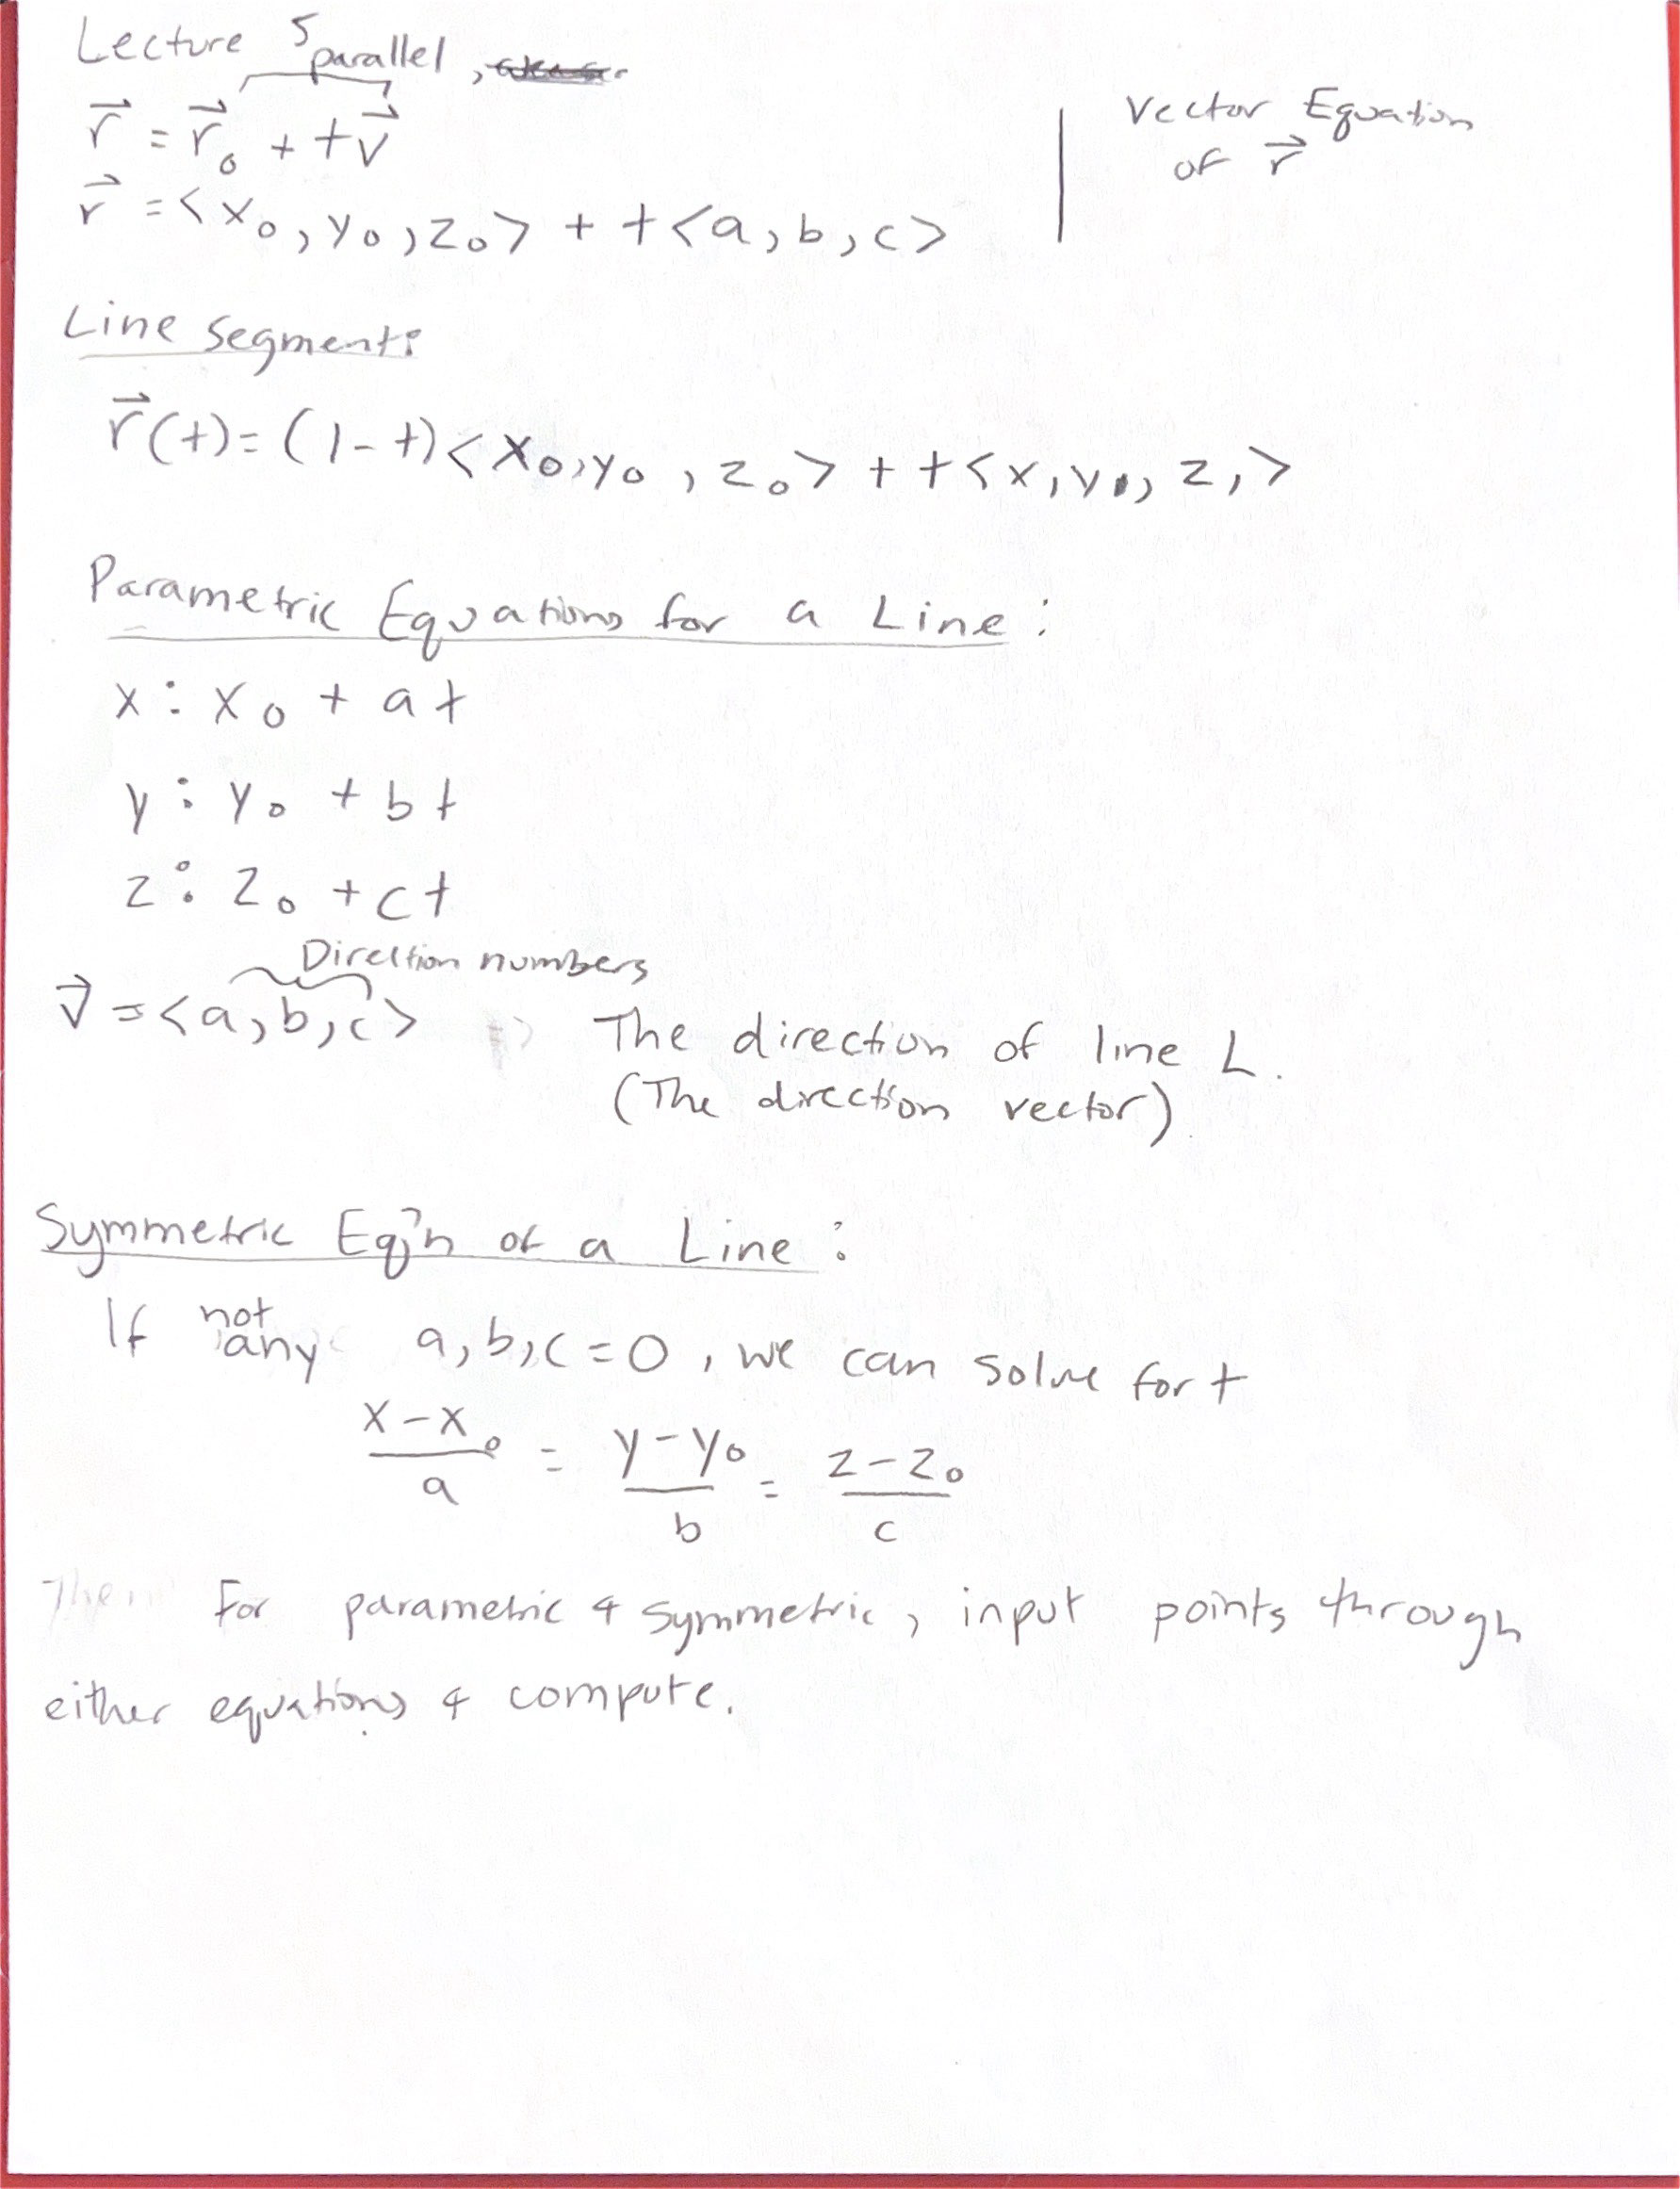 Lecture 5
parallel,
r⃗ = r⃗₀ + tv⃗
r⃗ = <x₀, y₀, z₀> + t<a, b, c>
Vector Equation
of r⃗
Line segment:
r⃗(t) = (1-t)<x₀, y₀, z₀> + t<x₁, y₁, z₁>
Parametric Equations for a Line:
x: x₀ + at
y: y₀ + bt
z: z₀ + ct
Direction numbers
v⃗ = <a, b, c>
The direction of line L.
(The direction vector)
Symmetric Eq'n of a Line:
If not any a, b, c = 0, we can solve for t
x-x₀/a = y-y₀/b = z-z₀/c
For parametric & symmetric, input points through
either equations & compute.